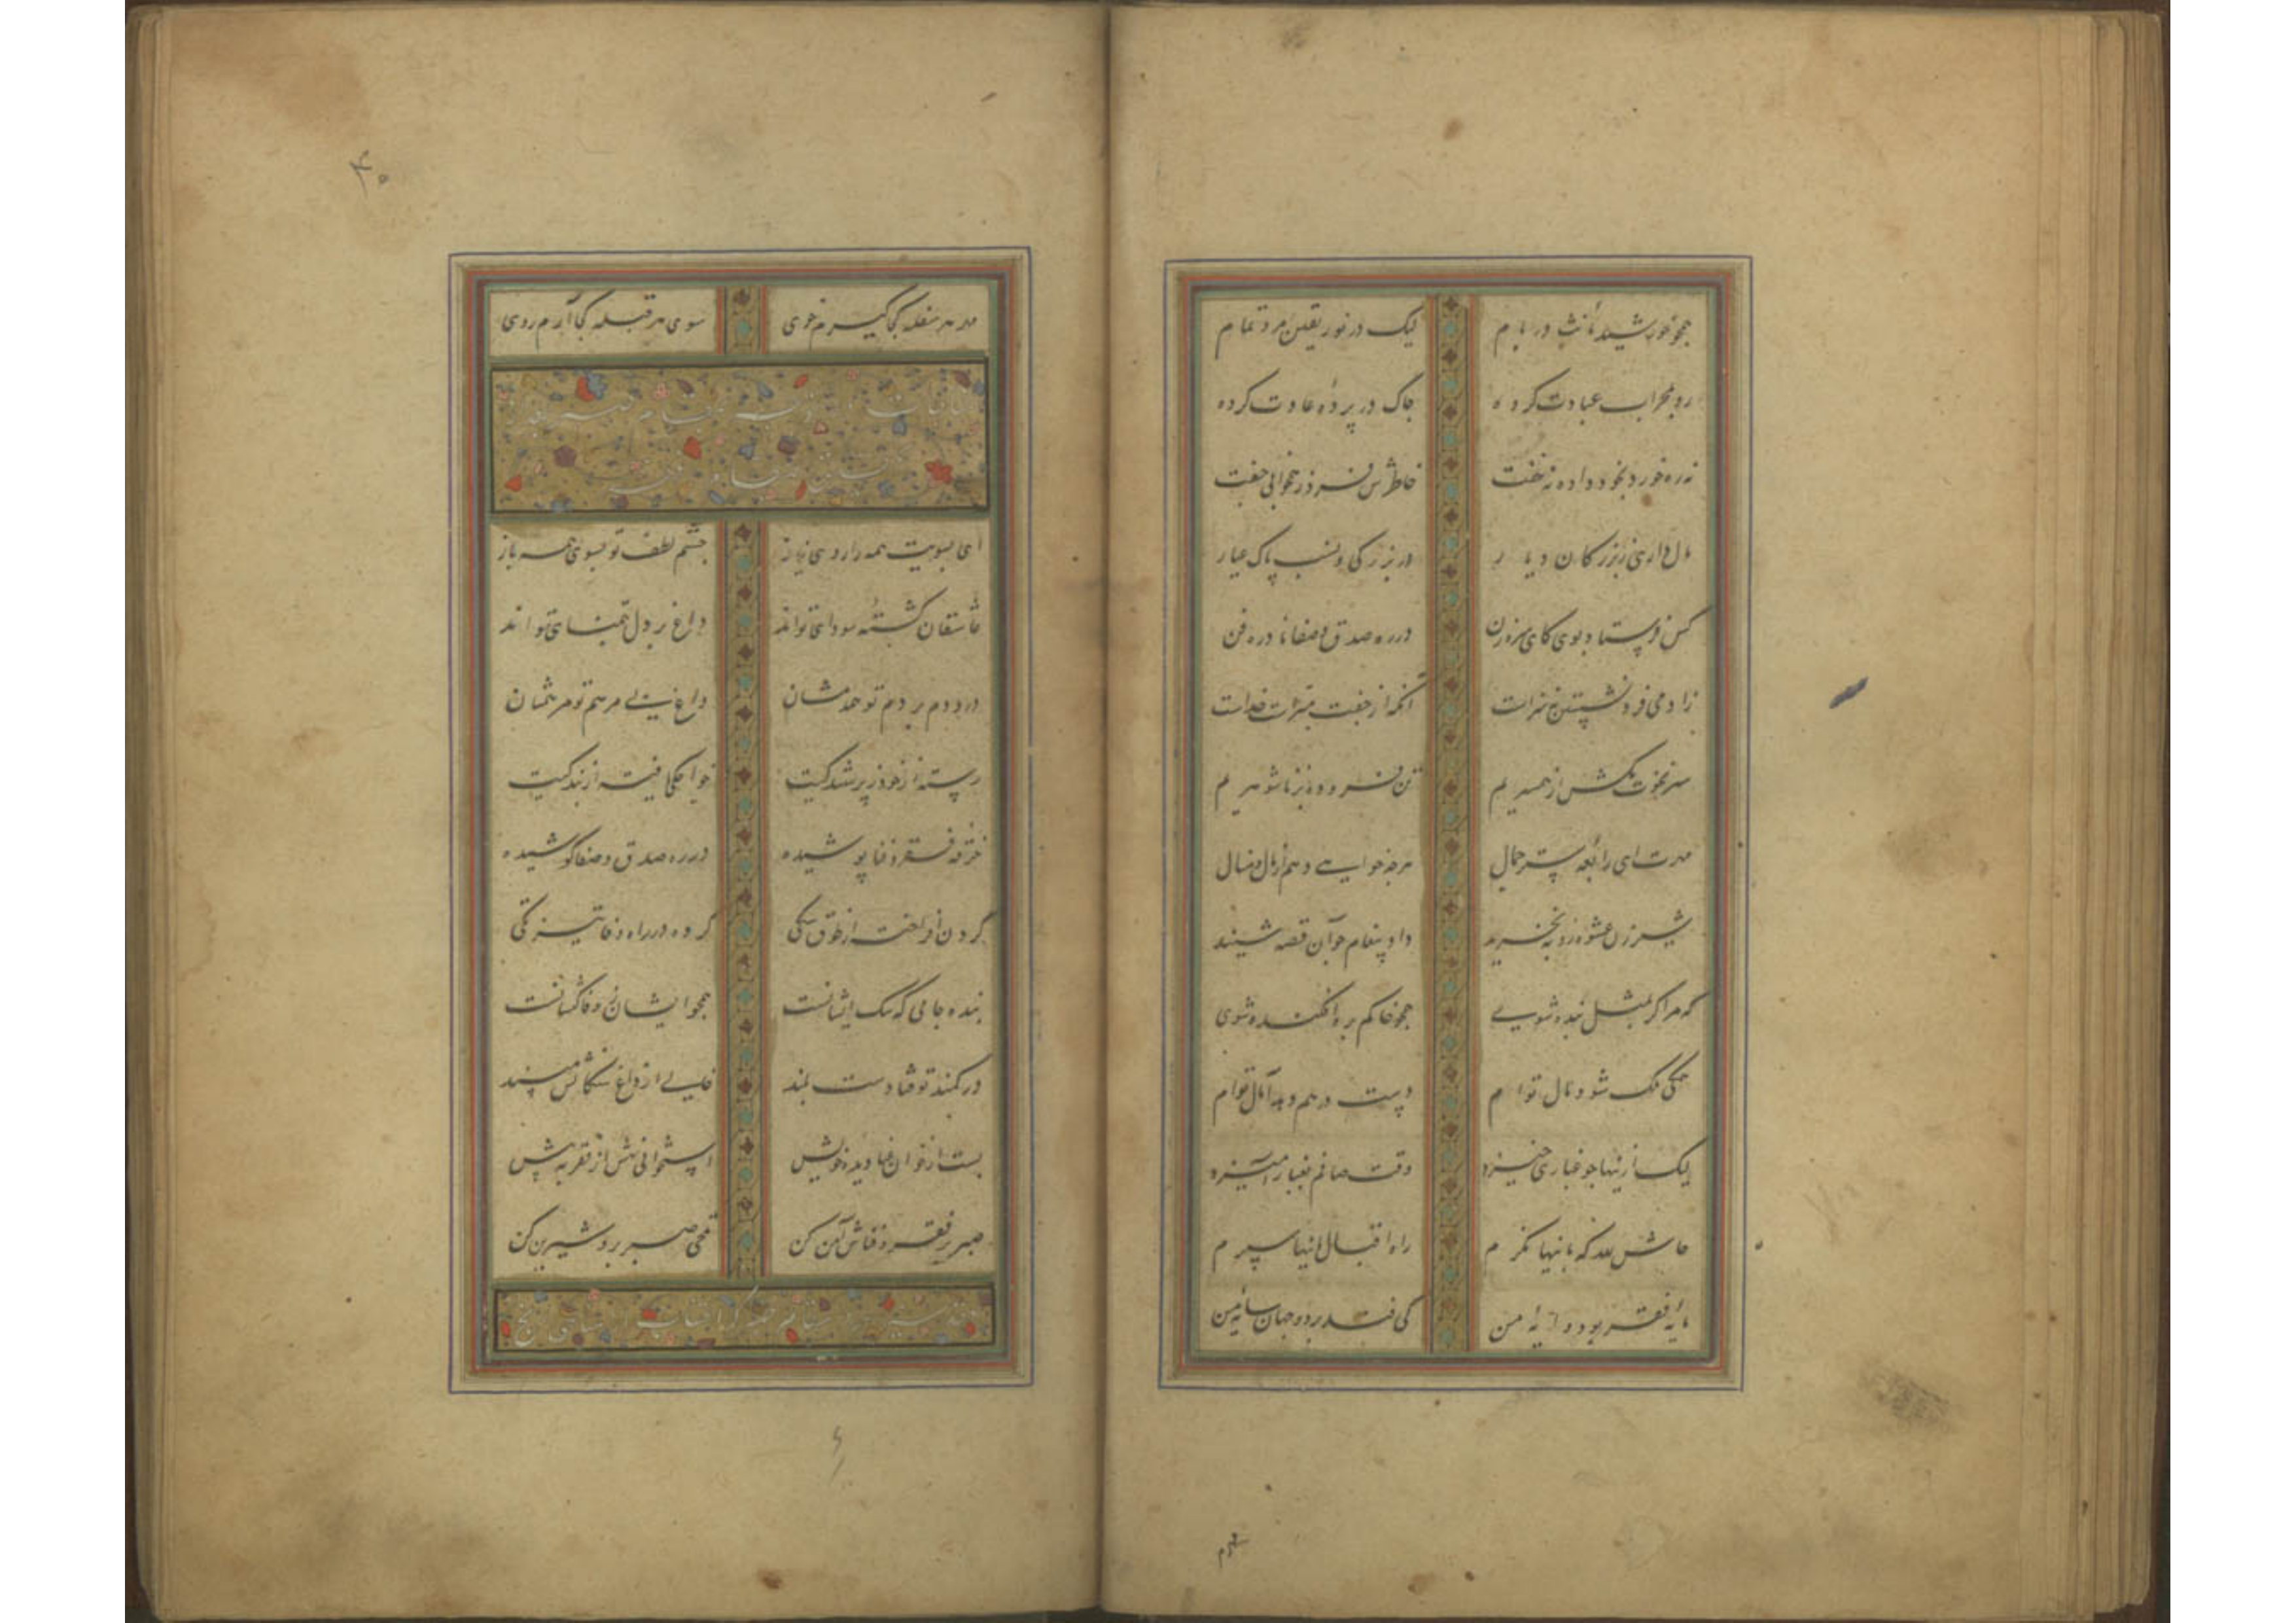 همچو خورشید مؤنث در نام لیک در نور یقین مرد تمام
رو بمحراب عبادت کرده چاک در پرده عادت کرده
نه ره خورد بخود داده نه خفت خاطرش فرد ز همخوابی جفت
مالداری ز بزرگان دیار در بزرگی و نسب پاک عیار
کس فرستاد بوی کای سره زن در ره صدق و صفا نادره فن
زادمی فرد نشستن نه سزاست آنکه از جفت مبراست خداست
سر نخوت مکش از همسریم تن فرو ده بزناشوهریم
مهرت ای رابعه ستر جمال هرچه خواهی دهم از مال و منال
شیر زن عشوه روبه نخرید داد پیغام چو آن قصه شنید
که مرا گر بمثل بنده شوی همچو خاکم بره افکنده شوی
همگی ملک شود مال توام دست در هم دهد آمال توام
لیک ازینها چو غباری خیزد وقت صافم بغبار آمیزد
حاش لله که باینها نگرم راه اقبال باینها سپرم
مایه فقر بود وایه من کی فتد بر دو جهان سایه من
۴۰
هر سفله کجا گیرم خوی سوی هر قبله کجا آرم روی
ای بسویت همه را روی نیاز چشم لطف تو بسوی همه باز
عاشقان کشته سودای تواند داغ بر دل ز تمنای تواند
درد دم بر دم تو همدمشان داغ بی مرهم تو مرهمشان
رسته از خود ز پرستندگیت خواجگی یافته از بندگیت
خرقه فقر و فنا پوشیده در ره صدق و صفا کوشیده
گردن افراخته از طوق سگی کرده در راه وفا تیز تگی
بنده جامی که سگ ایشانست همچو ایشان ز وفا کیشانست
در کمند تو فتادست بلند خالی از داغ سگانش مپسند
بست از خوان غنا دیده خویش استخوانی نهش از فقر به پیش
صبر بر فقر و فناش آئین کن تلخی صبر برو شیرین کن